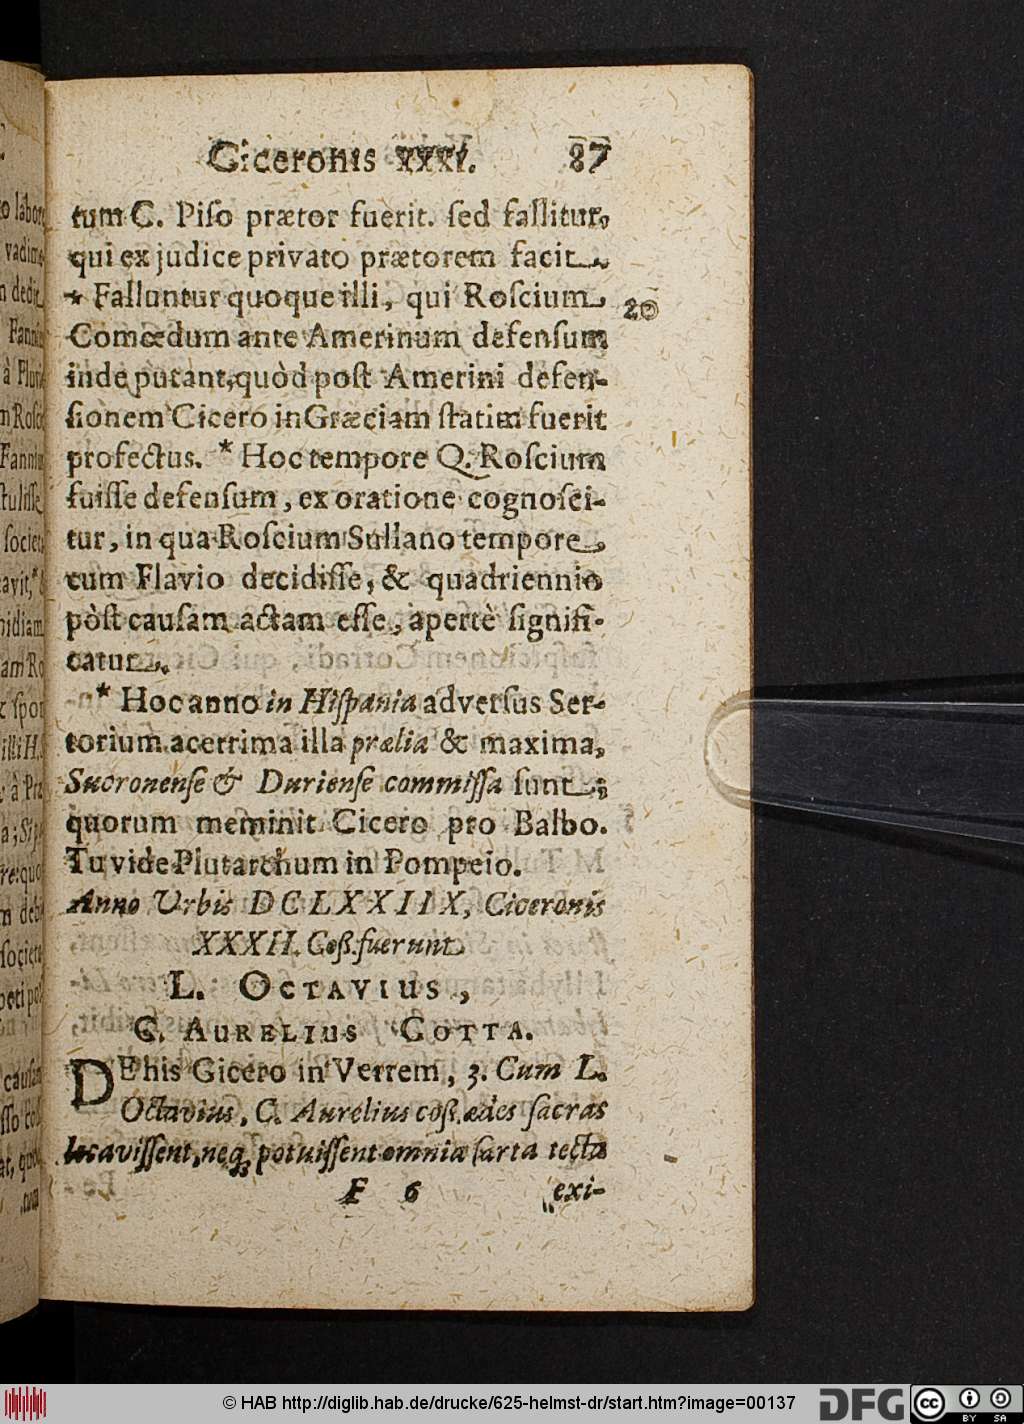 Ciceronis XXXI. 87
tum C. Piſo prætor fuerit. ſed fallitur,
qui ex judice privato prætorem facit.
* Falluntur quoque illi, qui Roſcium 20
Comœdum ante Amerinum defenſum
inde putant, quòd poſt Amerini defen-
ſionem Cicero in Græciam ſtatim fuerit
profectus. * Hoc tempore Q. Roſcium
fuiſſe defenſum, ex oratione cognoſci-
tur, in qua Roſcium Sullano tempore
cum Flavio decidiſſe, & quadriennio
pòſt cauſam actam eſſe, apertè ſignifi-
catur.
* Hoc anno in Hiſpania adverſus Ser-
torium acerrima illa prælia & maxima,
Sucronenſe & Durienſe commiſſa ſunt;
quorum meminit Cicero pro Balbo.
Tu vide Plutarchum in Pompeio.
Anno Urbis DCLXXIIX, Ciceronis
XXXII. Coß. fuerunt
L. OCTAVIUS,
C. AURELIUS COTTA.
DE his Cicero in Verrem, 3. Cum L.
Octavius, C. Aurelius coſſ. ædes ſacras
locaviſſent, neq; potuiſſent omnia ſarta tecta
F 6 exi-
© HAB http://diglib.hab.de/drucke/625-helmst-dr/start.htm?image=00137
DFG
cc
BY SA